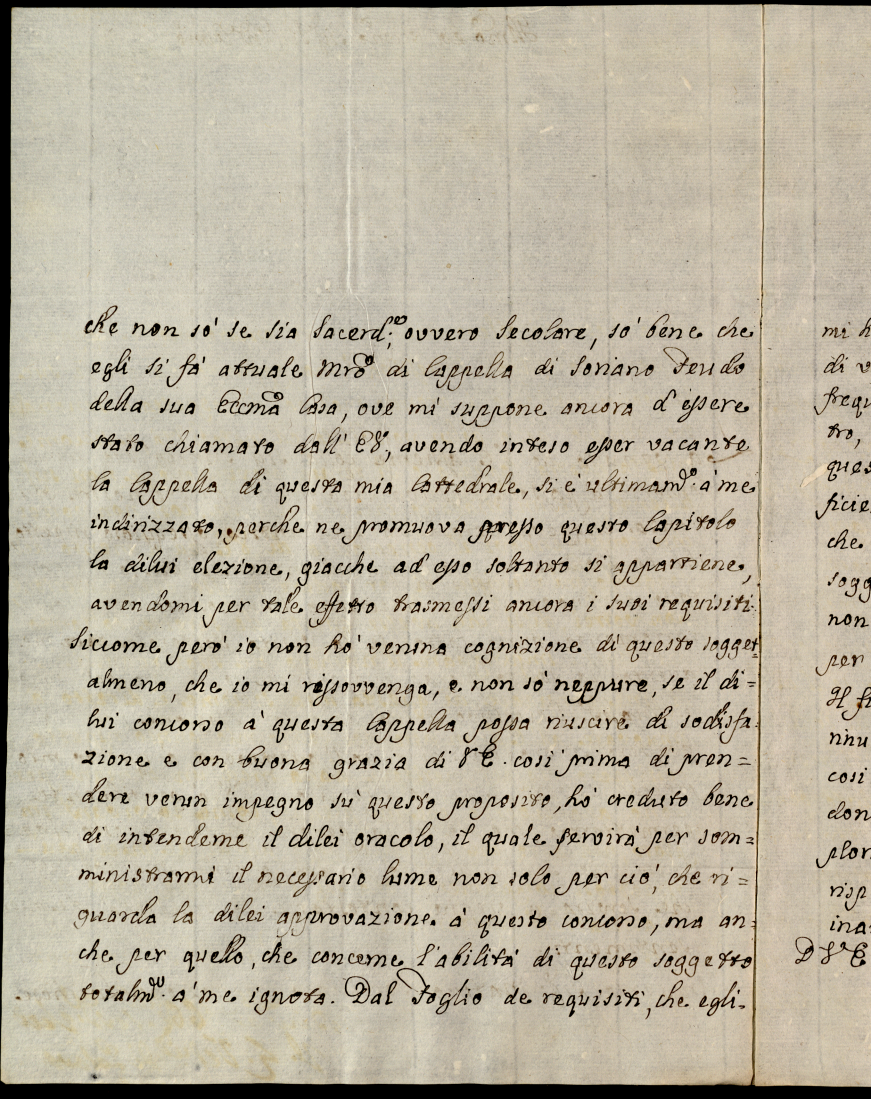 che non sò se sia Sacerd.e, ovvero Secolare, sò bene che
egli si fà attuale Mrõ di Cappella di Soriano Feudo
della sua Eccma Casa, ove mi suppone ancora d'essere
stato chiamato dall' EV, avendo inteso esser vacante
la Cappella di questa mia Cattedrale, si è ultimamte. à me
indirizzato, perche ne promuova presso questo Capitolo
la dilui elezione, giacche ad esso soltanto si appartiene,
avendomi per tale effetto trasmessi ancora i suoi requisiti.
Siccome però io non hò veruna cognizione di questo sogget=
almeno, che io mi rissovvenga, e non sò neppure, se il di=
lui concorso à questa Cappella possa riuscire di sodisfa=
zione e con buona grazia di VE. così prima di pren=
dere verun impegno sù questo proposito, hò creduto bene
di intenderne il dilei oracolo, il quale servirà per som=
ministrarmi il necessario lume non solo per ciò, che ri=
guarda la dilei approvazione à questo concorso, ma an=
che per quello, che concerne l'abilità di questo soggetto
totalmte. à me ignota. Dal Foglio de requisiti, che egli=
mi
di
frequ
tro,
ques
ficie
che
sogg
non
per
cosi
don
plor
risp
ina
D VE